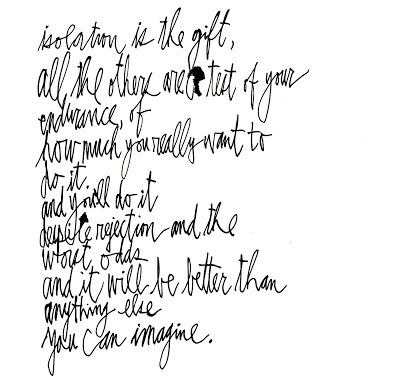 isolation is the gift,
all the others are a test of your
endurance, of
how much you really want to
do it.
and you'll do it
despite rejection and the
worst odds
and it will be better than
anything else
you can imagine.